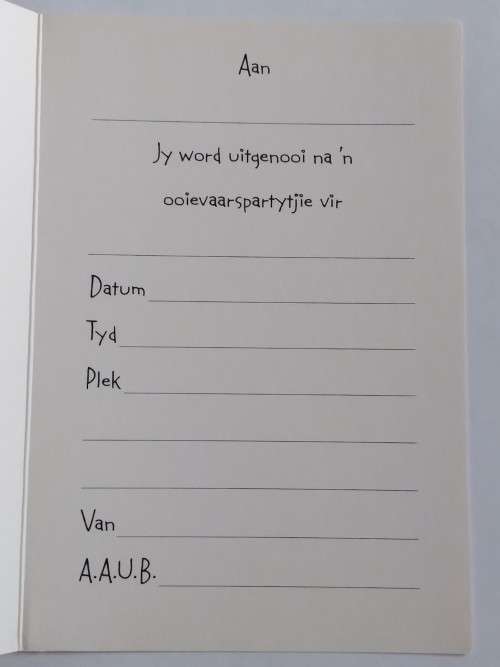 Aan
Jy word uitgenooi na 'n
ooievaarspartytjie vir
Datum
Tyd
Plek
Van
A.A.U.B.